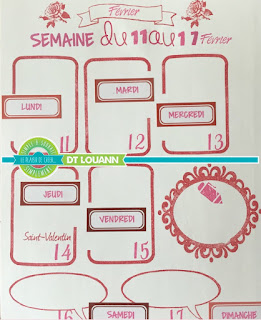 Février
SEMAINE du 11 au 17 Février
LUNDI
11
MARDI
12
MERCREDI
13
DT LOUANN
JEUDI
Saint-Valentin
14
VENDREDI
15
16
SAMEDI
17
DIMANCHE